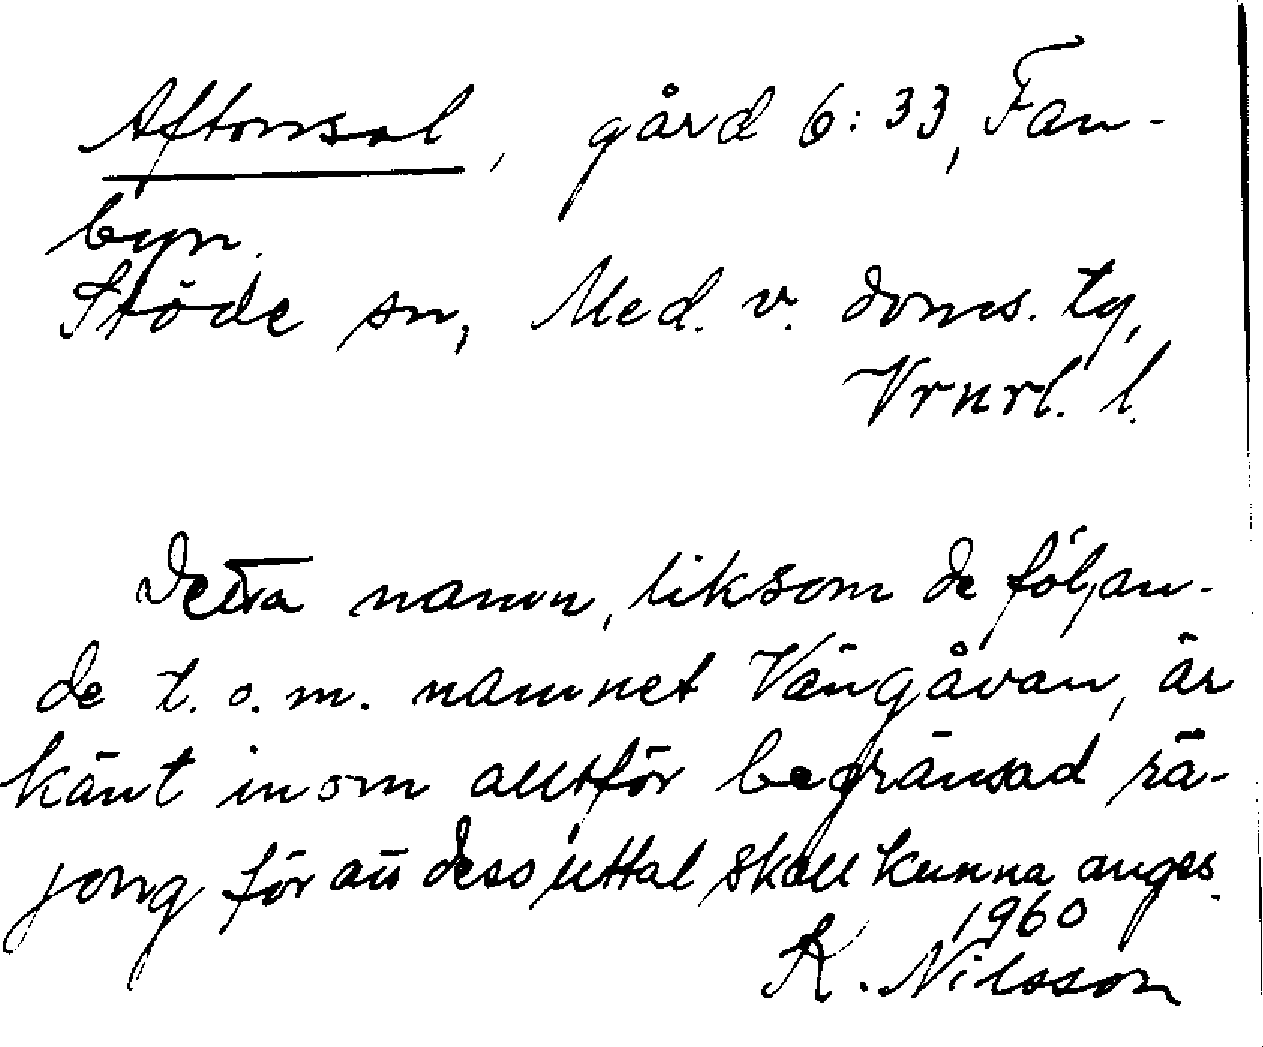 Aftonsol, gård 6:33, Fan-
byn.
Stöde sn, Med. v. doms. tg,
Vrnrl. l.
Detta namn, liksom de följan-
de t. o. m. namnet Vängåvan, är
känt inom alltför begränsad rä-
jong för att dess uttal skall kunna anges.
1960
K. Nilsson